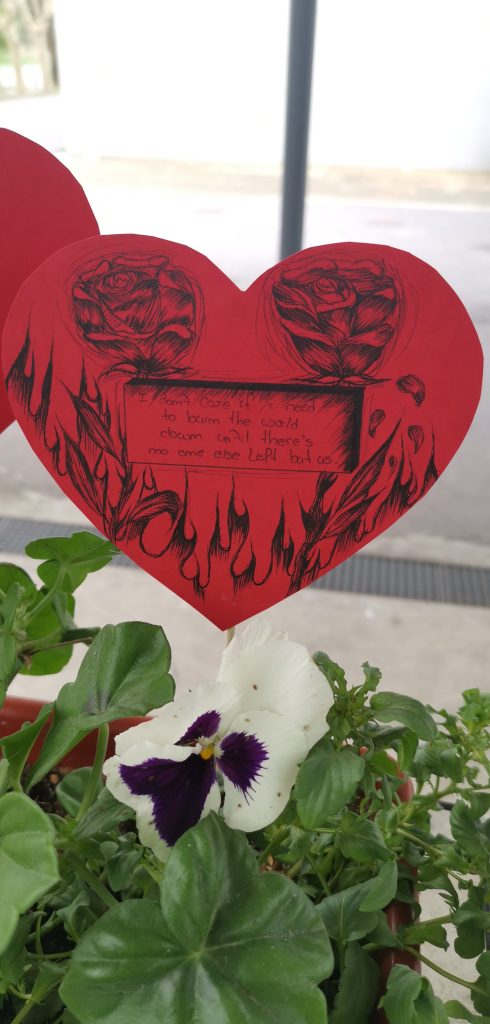 I don't care if i need
to burn the world
down until there's
no one else left but us.